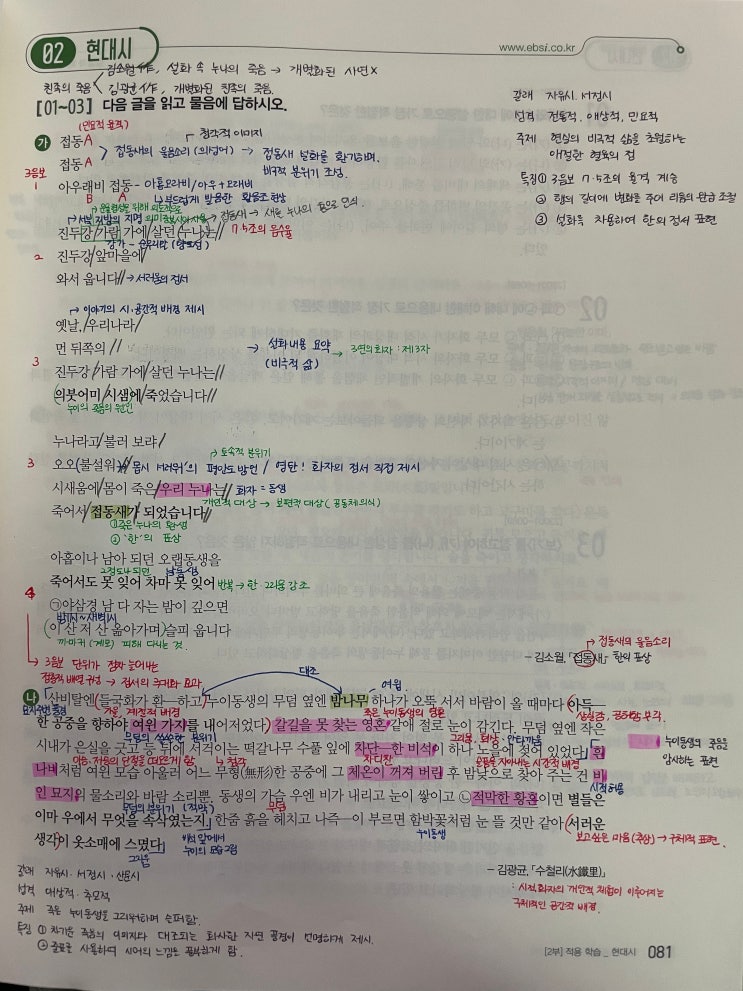 02 현대시
www.ebsi.co.kr
친족의 죽음 < 김소월作, 설화 속 누나의 죽음 → 개별화된 사연 X
김광균作, 개별화된 친족의 죽음
[01~03] 다음 글을 읽고 물음에 답하시오.
갈래 자유시. 서정시
성격 전통적, 애상적, 민요적
주제 현실의 비극적 삶을 초월하는
애절한 혈육의 정
특징 ① 3음보 7·5조의 율격 계승
② 행의 길이에 변화를 주어 리듬의 완급 조절
③ 설화를 차용하여 한의 정서 표현
(민요적 율격)
가 접동 A
청각적 이미지
접동 A > 접동새의 울음소리 (의성어) → 접동새 설화를 환기하며,
비극적 분위기 조성.
3음보
1 아우래비 접동 - 아홉오라비/아우+오래비
B A
진두강/가람 가에/살던 누나는// 7·5조의 음수율
2 진두강/앞마을에/
와서 웁니다// → 서러움의 정서
→ 이야기의 시·공간적 배경 제시
옛날,/우리나라/
먼 뒤쪽의//
→ 설화 내용 요약 → 3연의 화자 : 제3자
(비극적 삶)
3 진두강/가람 가에/살던 누나는//
의붓어미/시샘에/죽었습니다//
누이의 죽음의 원인
누나라고/불러 보랴/
→ 토속적 분위기
3 오오/불설워// '몹시 서러워'의 평안도 방언 / 영탄! 화자의 정서 직접 제시
시새움에/몸이 죽은/우리 누나는// 화자 = 동생
개인적 대상 → 보편적 대상 (공동체 의식)
죽어서/접동새가/되었습니다//
① 죽은 누나의 환생
② '한'의 표상
아홉이나 남아 되던 오랩동생을
남동생
죽어서도 못 잊어 차마 못 잊어 반복 → 한·그리움 강조
4 ㉠야삼경 남 다 자는 밤이 깊으면
이 산 저 산 옮아가며 슬피 웁니다
까마귀 (계모) 피해 다니는 것.
→ 접동새의 울음소리
- 김소월, 「접동새」 한의 표상
→ 3음보
점층적 배열 구성 → 정서의 극대화 효과
대조
→ 여윔
나 산비탈엔 들국화가 환—하고 누이동생의 무덤 옆엔 밤나무 하나가 오뚝 서서 바람이 올 때마다 아득—
가을, 계절적 배경
죽은 누이동생의 영혼
상실감, 공허함 부각.
한 공중을 향하야 여윈 가지를 내어저었다 갈길을 못 찾는 영혼 같애 절로 눈이 감긴다. 무덤 옆엔 작은
무덤의 쓸쓸한 분위기
시내가 은실을 긋고 등 뒤에 서걱이는 떡갈나무 수풀 앞에 차단—한 비석이 하나 노을에 젖어 있었다 흰
차디찬
누이동생의 죽음을
암시하는 표현
나비처럼 여윈 모습 아울러 어느 무형(無形)한 공중에 그 체온이 꺼져 버린 후 밤낮으로 찾아 주는 건 비
인 묘지의 물소리와 바람 소리뿐. 동생의 가슴 우엔 비가 내리고 눈이 쌓이고 ㉡적막한 황혼이면 별들은
시적 허용
이마 우에서 무엇을 속삭였는지. 한줌 흙을 헤치고 나즉—이 부르면 함박꽃처럼 눈 뜰 것만 같아 서러운
누이동생
보고싶은 마음(추상) → 구체적 표현.
생각이 옷소매에 스몄다.
그리움
- 김광균, 「수철리(水鐵里)」
: 시적화자의 개인적 체험이 이루어지는
구체적인 공간적 배경.
갈래 자유시·서정시·산문시
성격 애상적·추모적
주제 죽은 누이동생을 그리워하며 슬퍼함.
특징 ① 차가운 죽음의 이미지와 대조되는 화사한 자연 풍경이 선명하게 제시.
② 줄표를 사용하여 시어의 느낌을 풍부하게 함.
[2부] 적용 학습 _ 현대시 081